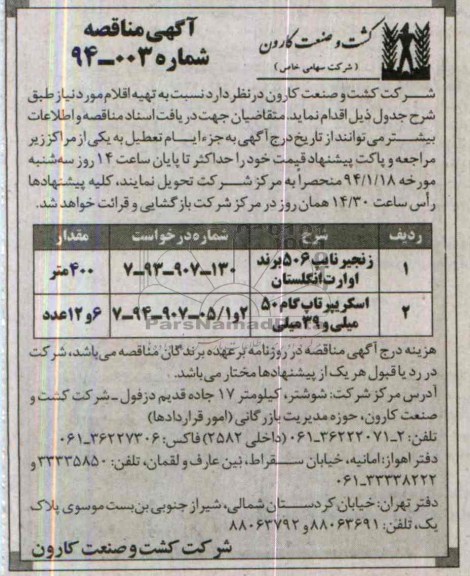 کشت و صنعت کارون
( شرکت سهامی خاص )
آگهی مناقصه
شماره ۰۰۳ــ۹۴
شــرکت کشت و صنعت کارون در نظر دارد نسبت به تهیه اقلام مورد نیاز طبق
شرح جدول ذیل اقدام نماید. متقاضیان جهت دریافت اسناد مناقصه و اطلاعات
بیشــتر می‌توانند از تاریخ درج آگهی به جزء ایــام تعطیل به یکی از مراکز زیر
مراجعه و پاکت پیشنهاد قیمت خود را حداکثر تا پایان ساعت ۱۴ روز سه‌شنبه
مورخه ۹۴/۱/۱۸ منحصراً به مرکز شــرکت تحویل نمایند، کلیه پیشنهادها
رأس ساعت ۱۴/۳۰ همان روز در مرکز شرکت بازگشایی و قرائت خواهد شد.
ردیف شرح شماره درخواست مقدار
۱ زنجیر تایپ ۵۰۶ برند اوارت انگلستان ۱۳۰ــ۹۰۷ــ۹۳ــ۷ ۴۰۰متر
۲ اسکریپر تاپ گام ۵۰ میلی و ۳۹ میلی ۲و۰۵/۱ــ۹۰۷ــ۹۴ــ۷ ۶و۱۲عدد
ParsNamadData
هزینه درج آگهی مناقصه در روزنامه بر عهده برندگان مناقصه می‌باشد، شرکت
در رد یا قبول هر یک از پیشنهادها مختار می‌باشد.
آدرس مرکز شرکت: شوشتر، کیلومتر ۱۷ جاده قدیم دزفول ــ شرکت کشت و
صنعت کارون، حوزه مدیریت بازرگانی (امور قراردادها)
تلفن: ۲ــ۳۶۲۲۲۰۷۱ــ۰۶۱ (داخلی ۲۵۸۲) فاکس: ۳۶۲۲۷۳۰۶ــ۰۶۱
دفتر اهواز: امانیه، خیابان ســقراط، بین عارف و لقمان، تلفن: ۳۳۳۳۵۸۵۰ و
۳۳۳۳۸۲۲۲ــ۰۶۱
دفتر تهران: خیابان کردســتان شمالی، شیراز جنوبی بن‌بست موسوی پلاک
یک، تلفن: ۸۸۰۶۳۶۹۱ و ۸۸۰۶۳۷۹۲
شرکت کشت و صنعت کارون